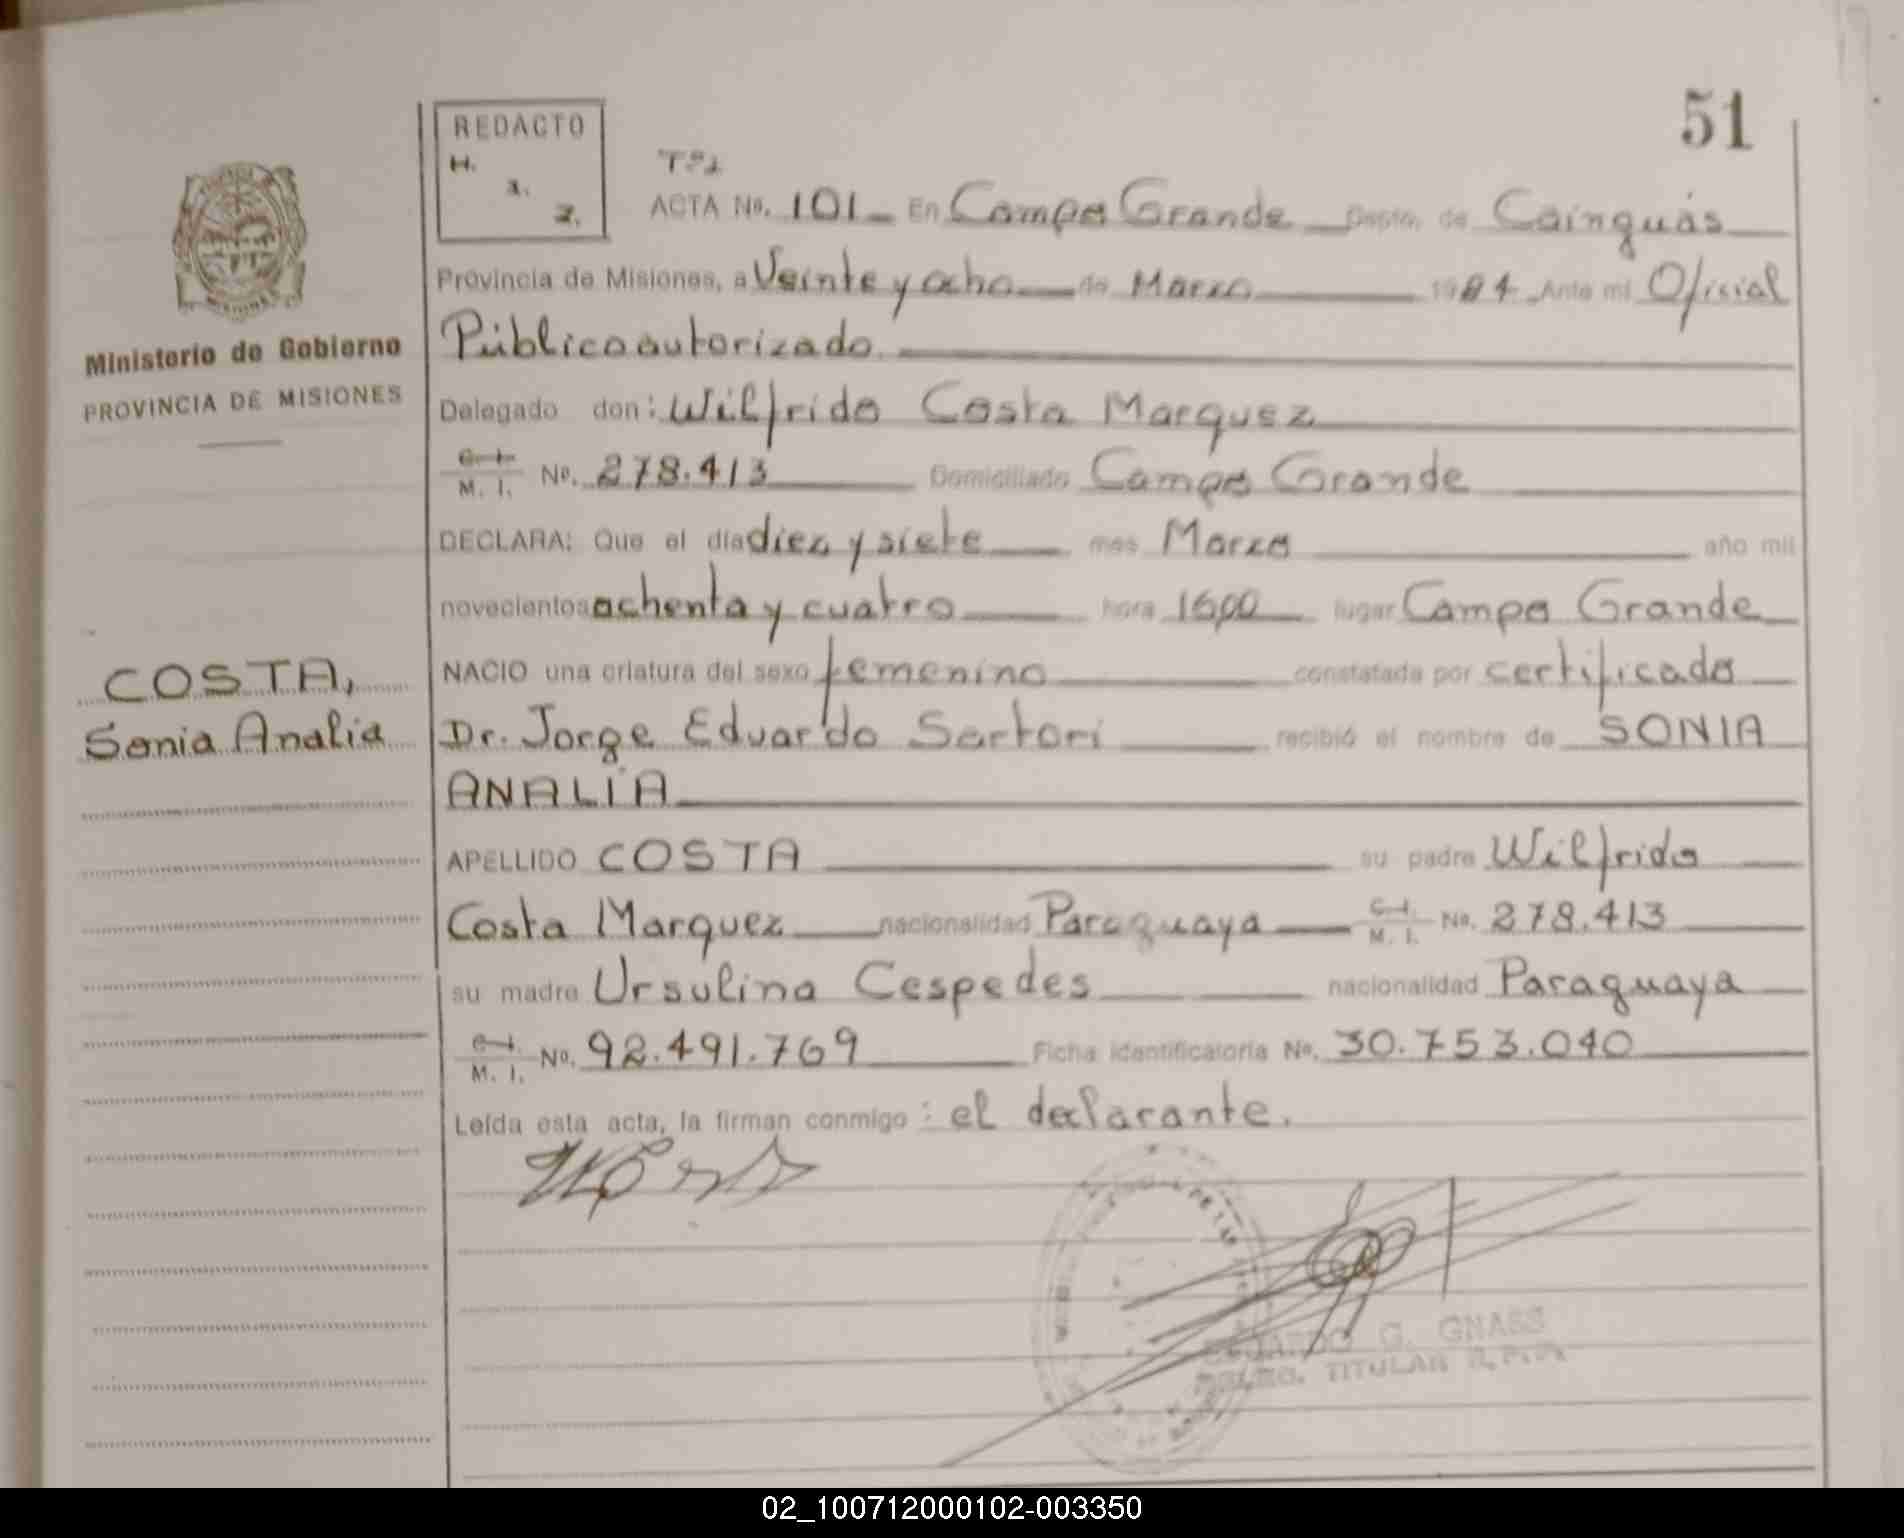 51
REDACTO
H.
Tº1
ACTA Nº. 101 En Campo Grande Depto. de Cainguás
Provincia de Misiones, a Veinte y ocho de Marzo 1984 Ante mí Oficial
Público autorizado.
Ministerio de Gobierno
PROVINCIA DE MISIONES
Delegado don: Wilfrido Costa Marquez
C. I.
M. I. Nº. 278.413 Domiciliado Campo Grande
DECLARA: Que el día diez y siete mes Marzo año mil
novecientos ochenta y cuatro hora 1600 lugar Campo Grande
COSTA,
Sonia Analia
NACIO una criatura del sexo femenino constatada por certificado
Dr. Jorge Eduardo Sartori recibió el nombre de SONIA
ANALÍA
APELLIDO COSTA su padre Wilfrido
Costa Marquez nacionalidad Paraguaya C. I.
M. I. Nº. 278.413
su madre Ursulina Cespedes nacionalidad Paraguaya
C. I.
M. I. Nº. 92.491.769 Ficha identificatoria Nº. 30.753.040
Leída esta acta, la firman conmigo: el declarante.
G. GNASS
TITULAR
02_100712000102-003350